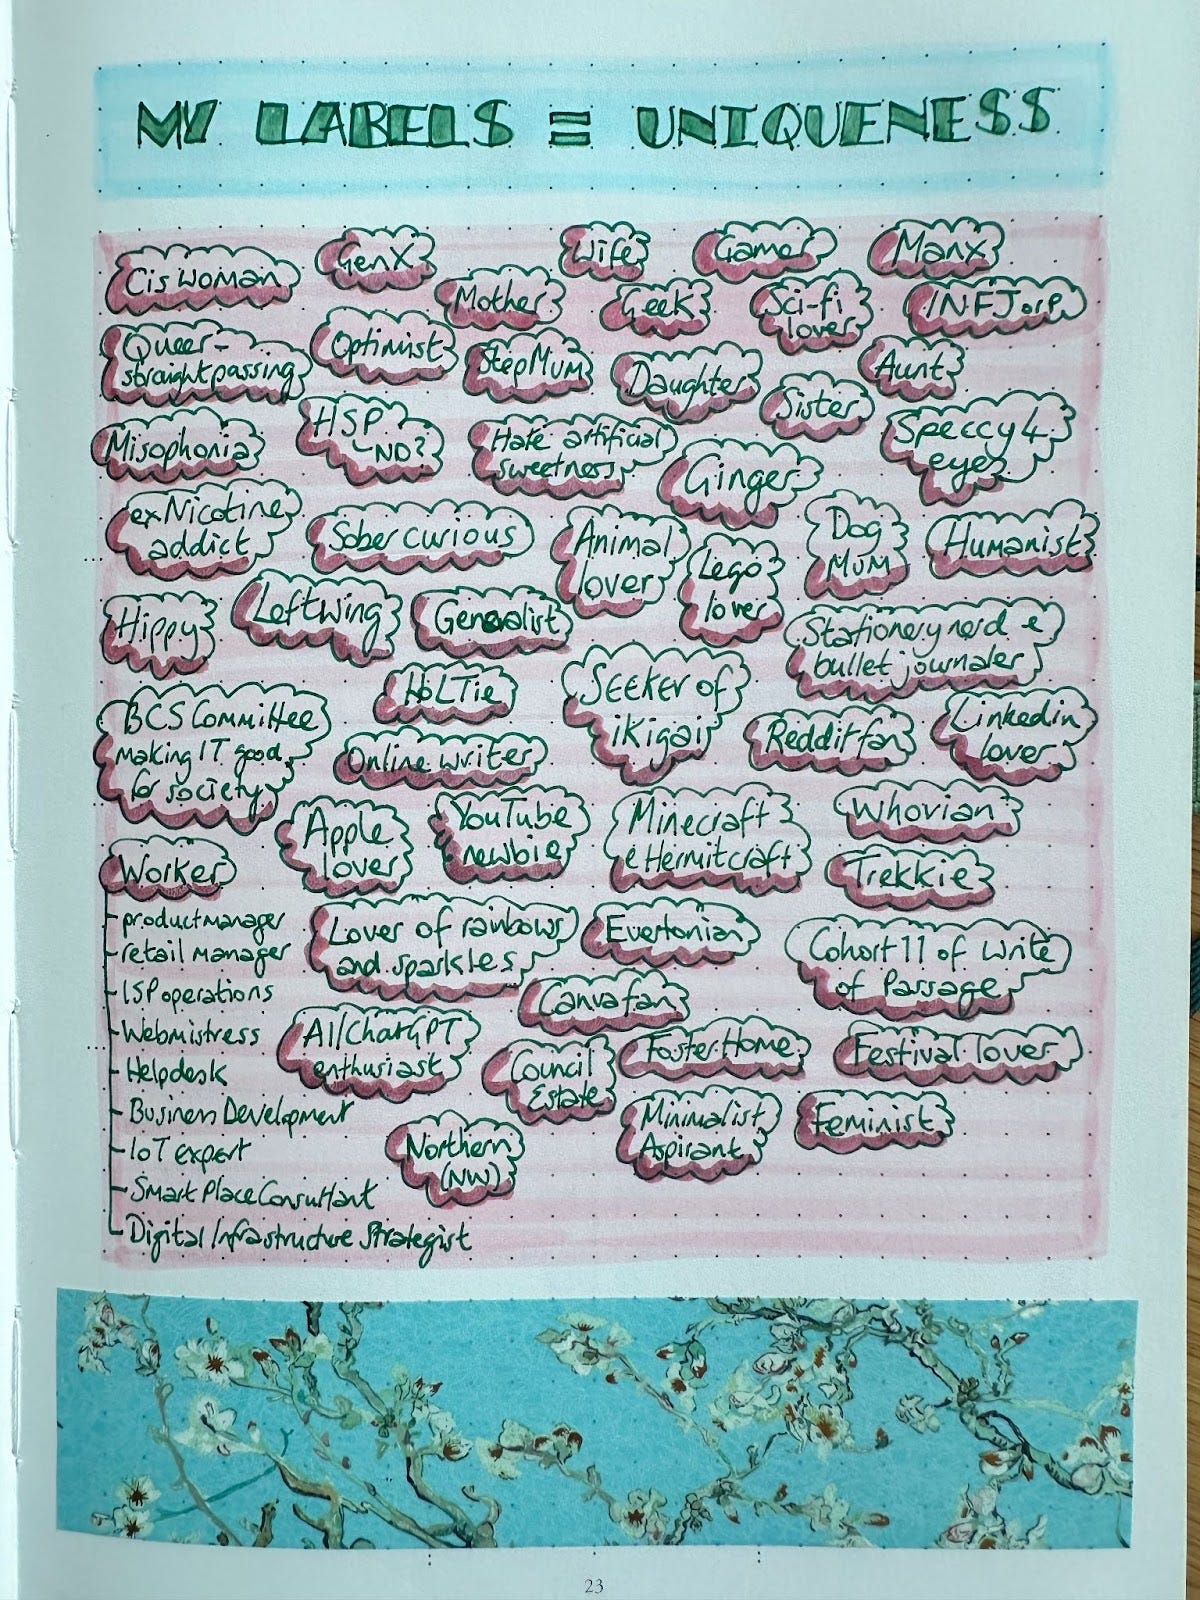 MY LABELS = UNIQUENESS
Cis Woman
GenX
Wife
Gamer
Manx
Mother
Geek
Sci-fi
lover
INFJ or P
Queer -
straight passing
Optimist
StepMum
Daughter
Aunt
Sister
Misophonia
HSP
ND?
Hate artificial
sweetness
Ginger
Speccy 4
eyes
ex Nicotine
addict
Sober curious
Animal
lover
Lego
lover
Dog
Mum
Humanist
Hippy
Left wing
Generalist
Stationery nerd &
bullet journaler
HoLTie
SEEKER of
iKigai
BCS Committee
making IT good
for society
Online writer
Reddit fan
Linkedin
lover
Apple
lover
YouTube
newbie
Minecraft
& Hermitcraft
Whovian
Trekkie
Worker
- product manager
- retail manager
- ISP operations
- Webmistress
- Helpdesk
- Business Development
- IoT expert
- Smart Place Consultant
- Digital Infrastructure Strategist
Lover of rainbows
and sparkles
Evertonian
Cohort 11 of Write
of Passage
Canva fan
AI/ChatGPT
enthusiast
Council
Estate
Foster Home
Festival lover
Northern
(NW)
Minimalist
Aspirant
Feminist
23